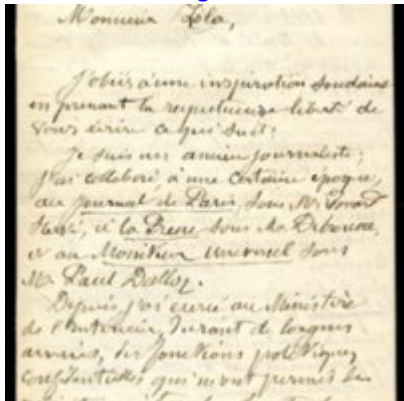 Monsieur Zola,
J'obéis à une inspiration soudaine
en prenant la respectueuse liberté de
vous écrire ce qui suit:
Je suis un ancien journaliste;
j'ai collaboré, à une certaine époque,
au Journal de Paris, sous Mr
à la Presse sous Mr Debrousse,
et au Moniteur Universel sous
M. Paul Dalloz.
Depuis j'ai exercé au Ministère
de l'Intérieur, durant de longues
années, des fonctions politiques
confidentielles qui m'ont permis de